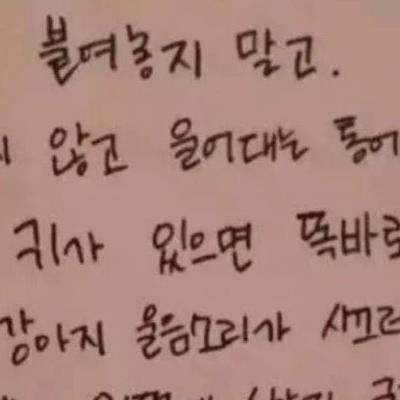 불여놓지 말고.
않고 울어대는 통에
귀가 있으면 똑바로
강아지 울음소리가 시끄러